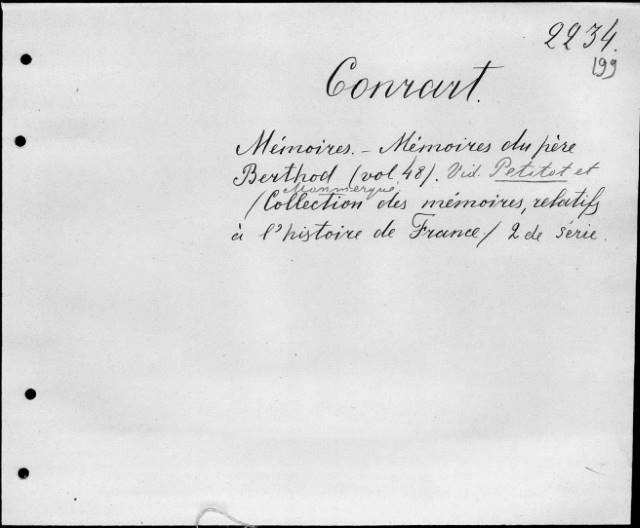 2234.
199
Conrart.
Mémoires. - Mémoires du père
Berthod (vol. 48). Vid. Petitot et
Monmerqué
/Collection des mémoires, relatifs
à l'histoire de France/ 2 de série.